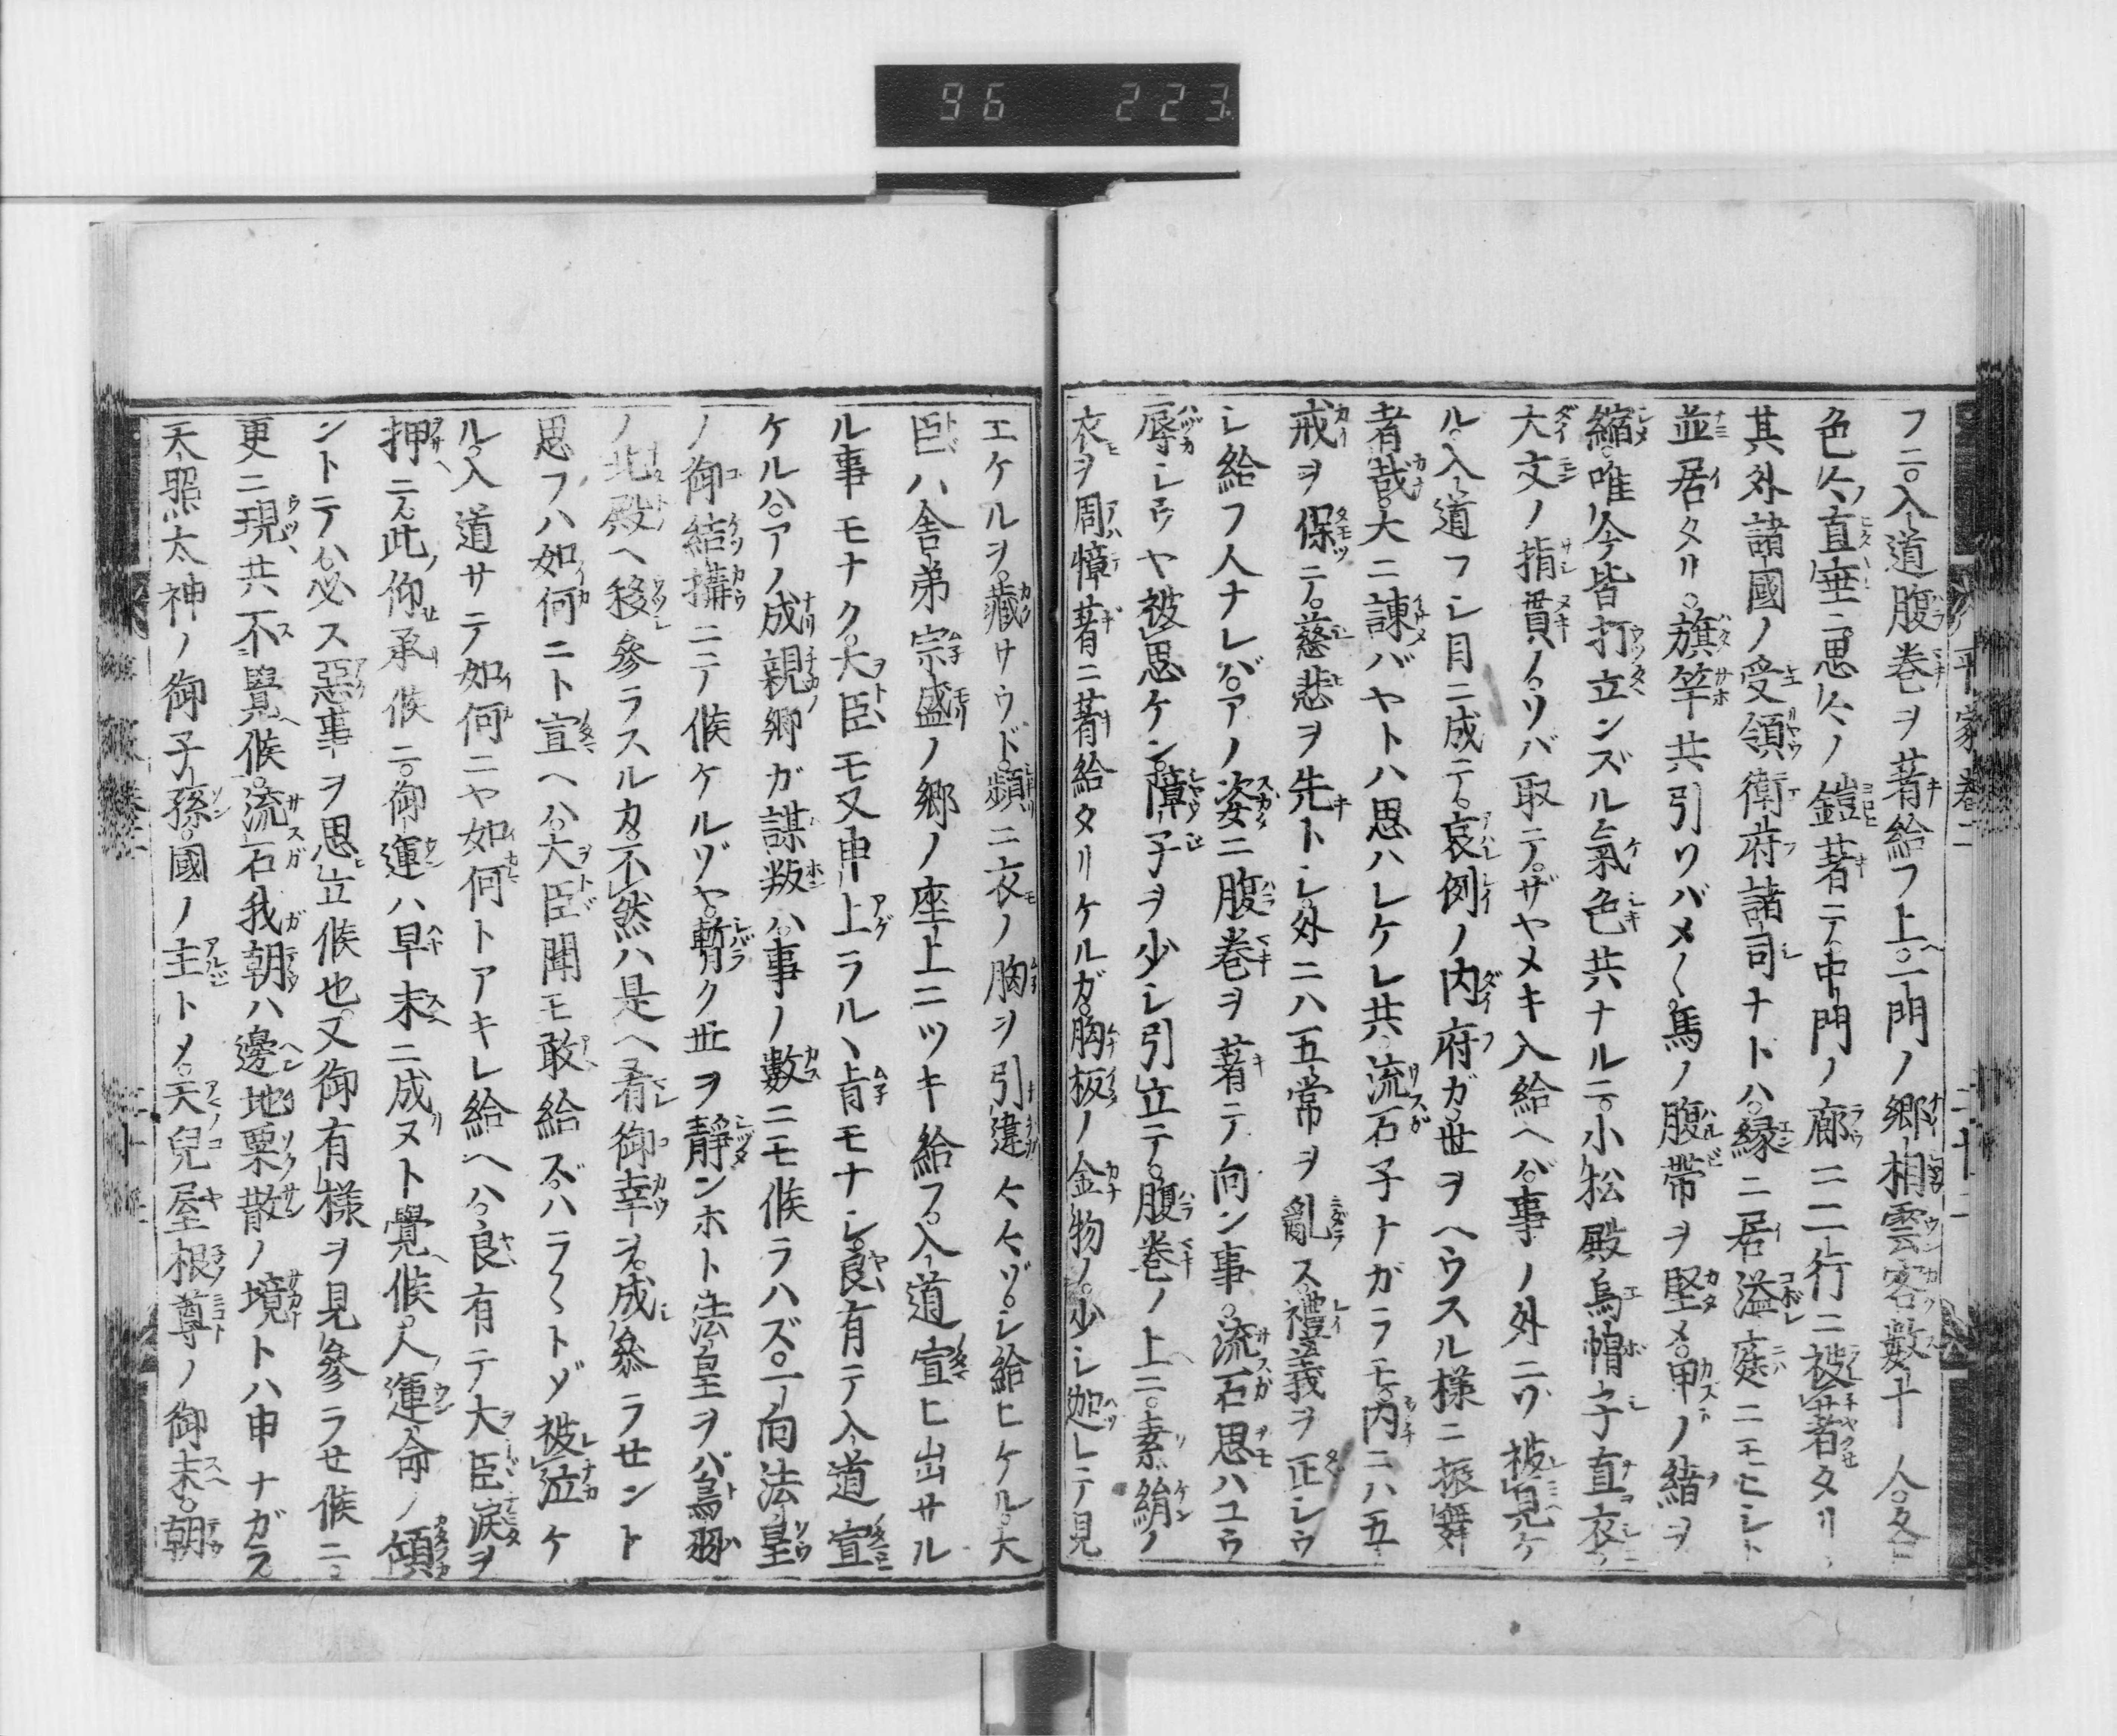 96 223
平家巻二
二十二
フニ。入道腹巻ヲ著給フ上。一門ノ郷相雲客數十人。各
色々直埀ニ思々ノ鎧著テ。中門ノ廊ニ二行ニ被著タリ
其外諸國ノ受領衛府諸司ナトハ。縁ニ居溢庭ニモヒシト
並居タリ。旗竿共引ソバメ〱。馬ノ腹帶ヲ堅メ。甲ノ緒ヲ
縮。唯今皆打立ンズル氣色共ナルニ。小松殿烏帽子直衣
大文ノ指貫ノソバ取テ。ザヤメキ入給ヘバ。事ノ外ニソ被見ケ
ル。入道フシ目ニ成テ。哀例ノ内府ガ。世ヲヘウスル様ニ振舞
者哉。大ニ諫バヤトハ思ハレケレ共。流石子ナガラモ。内ニハ五
戒ヲ保ニテ。慈悲ヲ先トシ。外ニハ五常ヲ亂ス。禮義ヲ正シウ
シ給フ人ナレバ。アノ姿ニ腹巻ヲ著テ向ン事。流石思ハユウ
辱シウヤ被思ケン。障子ヲ少シ引立テ。腹巻ノ上ニ。素絹ノ
衣ヲ周慞著ニ著給タリケルガ。胸板ノ金物ノ。少シ迦レテ見
エケルヲ。藏サウド。頻ニ衣ノ胸ヲ引違々々ゾ。シ給ヒケル。大
臣ハ舎弟宗盛ノ郷ノ座上ニツキ給フ。入道宣ヒ出サル
ル事モナク。大臣モ又申上ラルヽ旨モナシ。良有テ入道宣
ケルハ。アノ成親郷ガ謀叛ハ。事ノ數ニモ候ラハズ。一向法皇
ノ御結搆ニテ候ケルゾヤ。暫ク世ヲ靜ンホト。法皇ヲハ鳥羽
ノ北殿ヘ移參ラスルカ。不然ハ是ヘ肴御幸ヲ。成參ラセント
思フハ如何ニト宣ヘハ。大臣聞モ敢給ズ。ハラ〱トゾ被泣ケ
ル。入道サニテ如何ニヤ如何トアキレ給ヘハ。良有テ大臣涙ヲ
押ニ。此仰承候ニ。御運ハ早末ニ成ヌト覺候。人運命ノ傾
ントテハ。必ス惡事ヲ思立候也。又御有様ヲ見參ラセ候ニ。
更ニ現共不覺候。流石我朝ハ邊地粟散ノ境トハ申ナガラ。
天照太神ノ御子孫。國ノ主トメ。天兒屋根尊ノ御末。朝